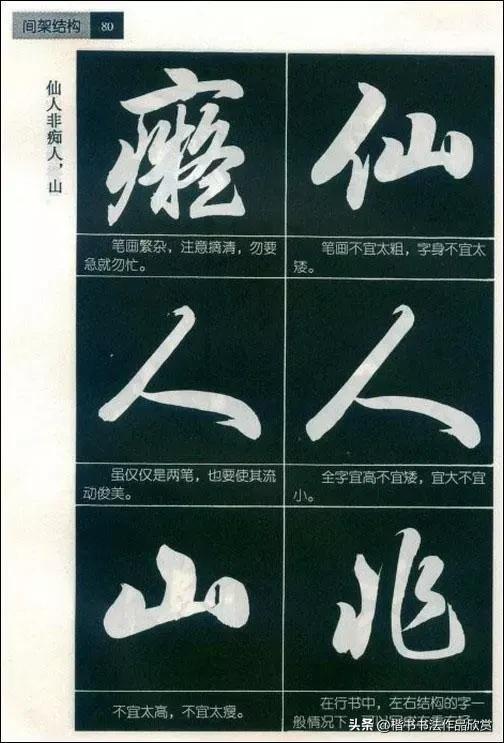 间架结构 80
仙人非痴人，山
仙
笔画不宜太粗，字身不宜太
矮。
人
全字宜高不宜矮，宜大不宜
小。
非
在行书中，左右结构的字一
般情况下
癡
笔画繁杂，注意摘清，勿要
急就勿忙。
人
虽仅仅是两笔，也要使其流
动俊美。
山
不宜太高，不宜太瘦。
头条 @楷书书法作品欣赏